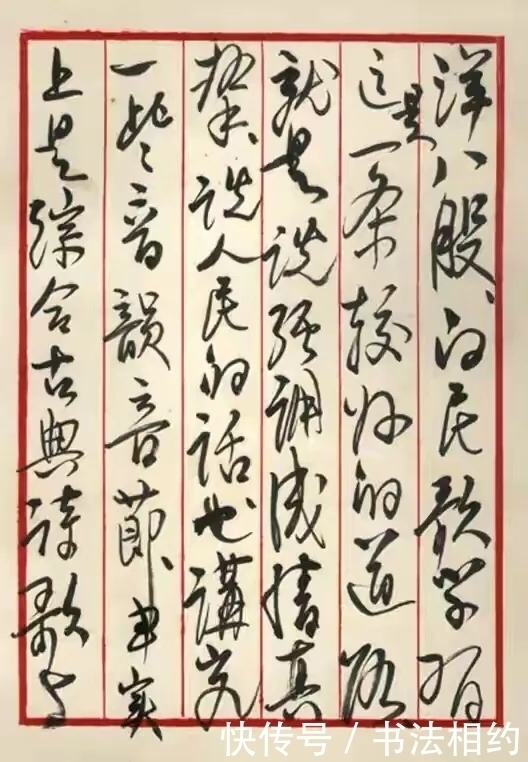 洋八股、向民歌学习
这是一条较好的道路
就是说强调感情真
挚、说人民的话也講究
一些音韻音節、事实
上是综合古典诗歌与
快传号 / 书法相约